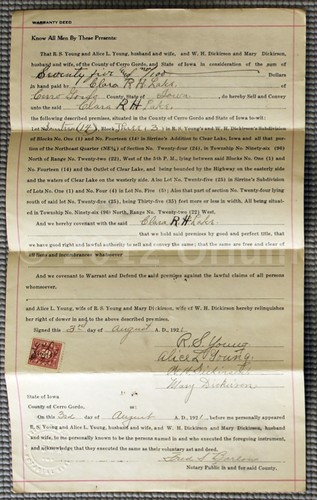 WARRANTY DEED
Know All Men By These Presents:
That R. S. Young and Alice L. Young, husband and wife, and W. H. Dickinson and Mary Dickinson,
husband and wife, of the County of Cerro Gordo, and State of Iowa in consideration of the sum of
Seventy five no/100 Dollars
in hand paid by Clara R. H. Lake,
Cerro Gordo County, State of Iowa, do hereby Sell and Convey
unto the said Clara R H Lake
the following described premises, situated in the County of Cerro Gordo and State of Iowa to-wit:
Lot (14) Block Three, 3 in R. S. Young's and W. H. Dickinson's Subdivision
of Blocks No. One (1) and No. Fourteen (14) in Stirlin's Addition to Clear Lake, Iowa, and all that por-
tion of the Northeast Quarter (NE¼) of Section No. Twenty-four (24), in Township No. Ninety-six (96)
North of Range No. Twenty-two (22), West of the 5th P. M., lying between said Blocks No. One (1) and
No. Fourteen (14) and the Outlet of Clear Lake, and being bounded by the Highway on the easterly
side and the waters of Clear Lake on the westerly side. A lot Lot No. Twenty-five (25) in Stirlin's Subdivision
of Lots No. One (1) and Four (4) of Lot No. Five (5); Also that part of section No. Twenty-four lying
south of said lot No. Twenty-five (25), being Thirty-five (35) feet more or less in width, All being situat-
ed in Township No. Ninety-six (96) North, Range No. Twenty-two (22) West.
And we hereby covenant with the said Clara R H Lake
that we hold said premises by good and perfect title, that
we have good right and lawful authority to sell and convey the same; that the same are free and clear of
all liens and incumbrances whatsoever
And we covenant to Warrant and Defend the said premises against the lawful claims of all persons
whomsoever,
and Alice L. Young, wife of R. S. Young and Mary Dickinson, wife of W. H. Dickinson hereby relinquishes
her right of dower in and to the above described premises.
Signed this 3rd day of August A. D., 192
R. S. Young
Alice L Young
Mary Dickinson
State of Iowa
County of Cerro Gordo,
On this 3rd day of August A. D. 192 before me personally appeared
R. S. Young and Alice L. Young, husband and wife, and W. H. Dickinson and Mary Dickinson, husband
and wife, to me personally known to be the persons named in and who executed the foregoing instrument,
and acknowledged that they executed the same as their voluntary act and deed.
Notary Public in and for said County.